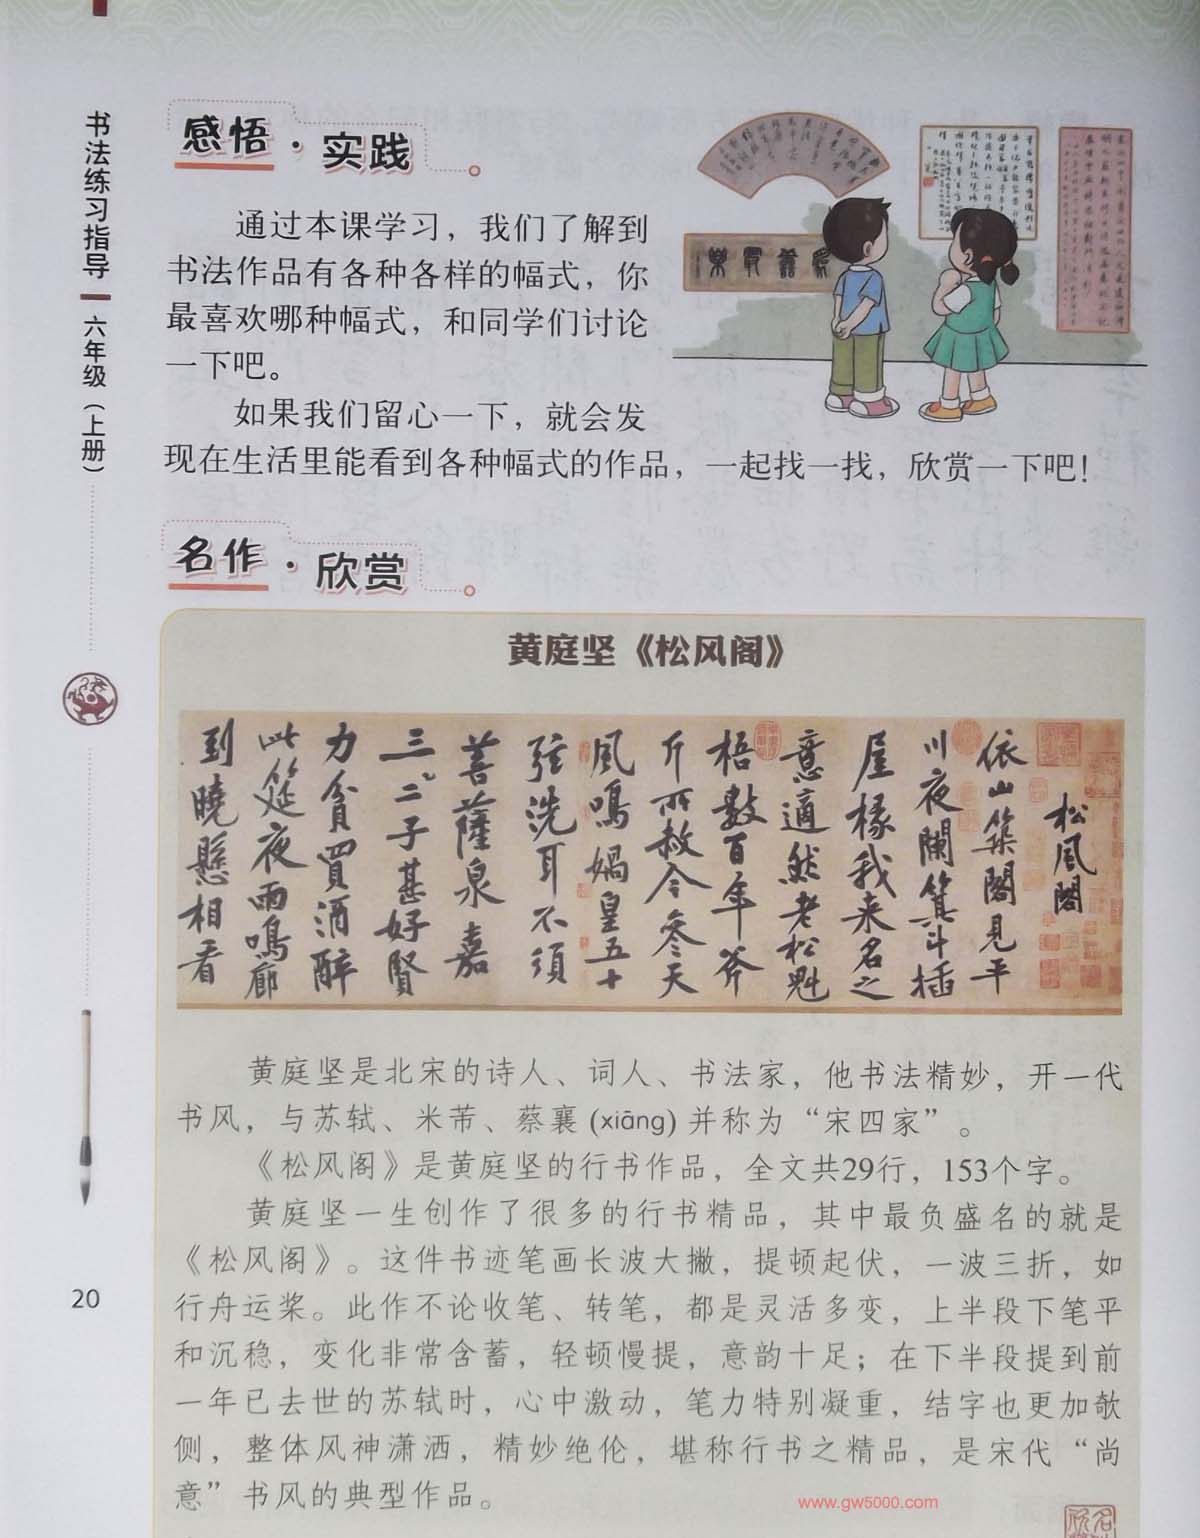 书法练习指导 六年级（上册）
感悟·实践
通过本课学习，我们了解到
书法作品有各种各样的幅式，你
最喜欢哪种幅式，和同学们讨论
一下吧。
如果我们留心一下，就会发
现在生活里能看到各种幅式的作品，一起找一找，欣赏一下吧！
名作·欣赏
黄庭坚《松风阁》
松風閣
依山築閣見平
川夜闌箕斗插
屋椽我来名之
意適然老松魁
梧數百年斧
斤所赦今参天
風鳴媧皇五十
弦洗耳不須
菩薩泉嘉
三二子甚好賢
力貧買酒醉
此筵夜雨鳴廊
到曉懸相看
黄庭坚是北宋的诗人、词人、书法家，他书法精妙，开一代
书风，与苏轼、米芾、蔡襄 (xiāng) 并称为“宋四家”。
《松风阁》是黄庭坚的行书作品，全文共29行，153个字。
黄庭坚一生创作了很多的行书精品，其中最负盛名的就是
《松风阁》。这件书迹笔画长波大撇，提顿起伏，一波三折，如
行舟运桨。此作不论收笔、转笔，都是灵活多变，上半段下笔平
和沉稳，变化非常含蓄，轻顿慢提，意韵十足；在下半段提到前
一年已去世的苏轼时，心中激动，笔力特别凝重，结字也更加欹
侧，整体风神潇洒，精妙绝伦，堪称行书之精品，是宋代“尚
意”书风的典型作品。
20
www.gw5000.com